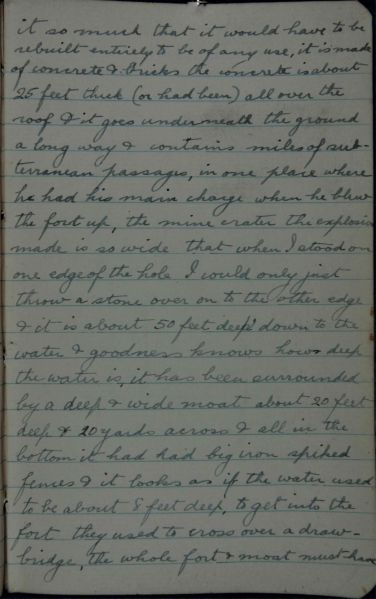 it so much that it would have to be
rebuilt entirely to be of any use, it is made
of concrete & bricks the concrete is about
25 feet thick (or had been) all over the
roof & it goes underneath the ground
a long way & contains miles of sub-
terranean passages, in one place where
he had his main charge when he blew
the fort up, the mine crater the explosion
made is so wide that when I stood on
one edge of the hole I could only just
throw a stone over on to the other edge
& it is about 50 feet deep down to the
water & goodness knows how deep
the water is, it has been surrounded
by a deep & wide moat about 20 feet
deep & 20 yards across & all in the
bottom it had had big iron spiked
fences & it looks as if the water used
to be about 8 feet deep, to get into the
fort they used to cross over a draw-
bridge, the whole fort & moat must have